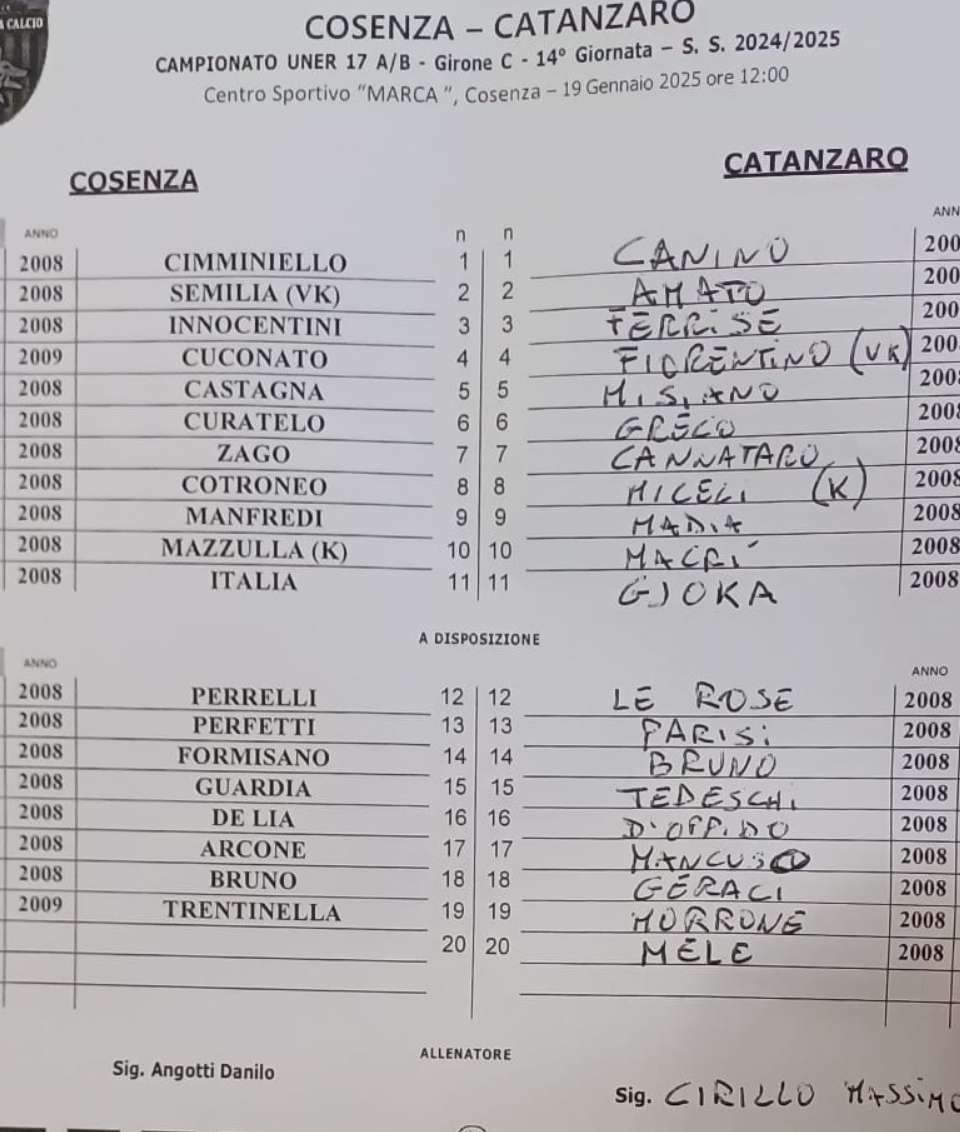 A CALCIO
COSENZA – CATANZARO
CAMPIONATO UNER 17 A/B - Girone C - 14° Giornata – S. S. 2024/2025
Centro Sportivo "MARCA ", Cosenza – 19 Gennaio 2025 ore 12:00
COSENZA CATANZARO
ANNO n n ANN
2008 CIMMINIELLO 1 1 CANINO 200
2008 SEMILIA (VK) 2 2 AMATO 200
2008 INNOCENTINI 3 3 TERRISE 200
2009 CUCONATO 4 4 FIORENTINO (VK) 200
2008 CASTAGNA 5 5 MISIANO 2008
2008 CURATELO 6 6 GRECO 2008
2008 ZAGO 7 7 CANNATARO 2008
2008 COTRONEO 8 8 MICELI (K) 2008
2008 MANFREDI 9 9 MADIA 2008
2008 MAZZULLA (K) 10 10 MACRI' 2008
2008 ITALIA 11 11 GJOKA 2008
A DISPOSIZIONE
ANNO ANNO
2008 PERRELLI 12 12 LE ROSE 2008
2008 PERFETTI 13 13 PARISI 2008
2008 FORMISANO 14 14 BRUNO 2008
2008 GUARDIA 15 15 TEDESCHI 2008
2008 DE LIA 16 16 2008
2008 ARCONE 17 17 MANCUSO 2008
2008 BRUNO 18 18 GERACI 2008
2009 TRENTINELLA 19 19 MORRONE 2008
20 20 MELE 2008
ALLENATORE
Sig. Angotti Danilo Sig. CIRILLO MASSIMO